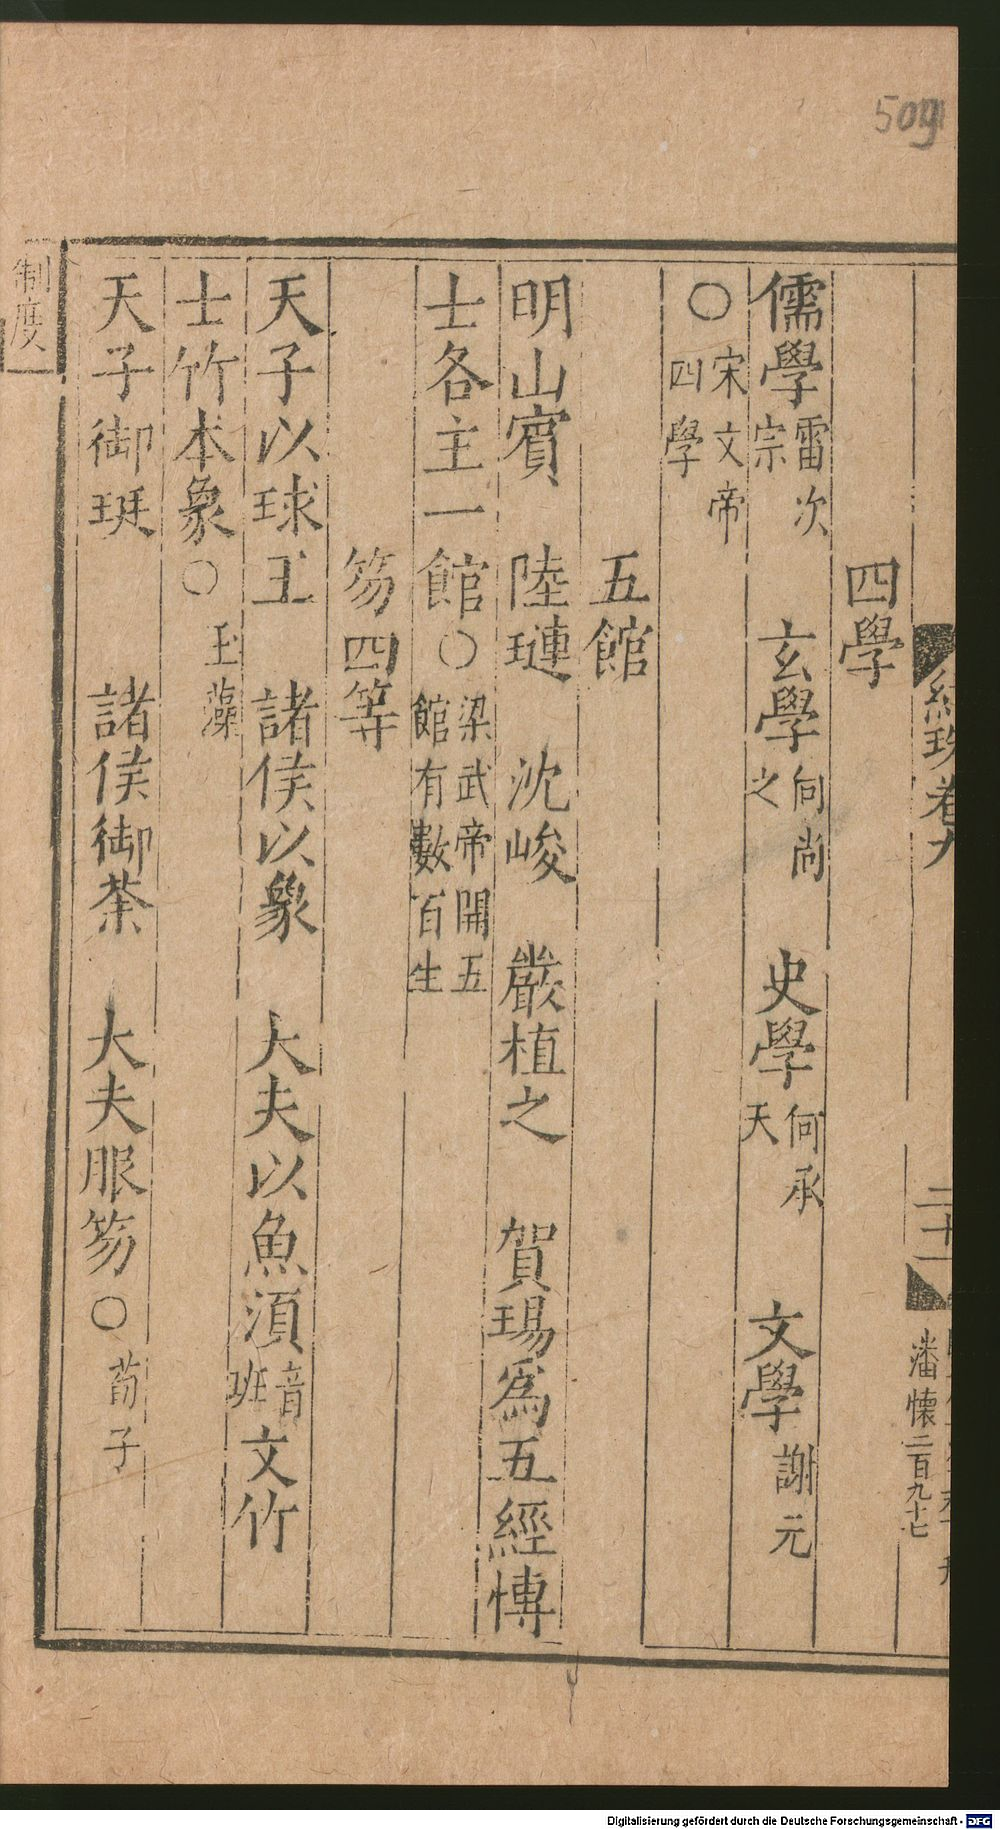 509
卷九
二十一
潘懷二百九十七
四學
儒學 雷次宗 玄學 何尚之 史學 何承天 文學 謝元
〇 宋文帝四學
五館
明山賓 陸璉 沈峻 嚴植之 賀瑒為五經博
士各主一館〇 梁武帝開五館有數百生
笏四等
天子以球玉 諸侯以象 大夫以魚須 音班 文竹
士竹本象〇 玉藻
天子御珽 諸侯御荼 大夫服笏〇 荀子
制度
Digitalisierung gefördert durch die Deutsche Forschungsgemeinschaft - DFG